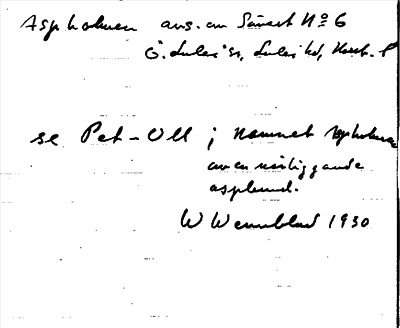 Aspholmen avs. av Sävast Nº 6
Ö. Luleå sn, Luleå hd, Norrb. l
se Pet-Oll ; Namnet Aspholmen
av en närliggande
asplund.
W Wennblad 1930